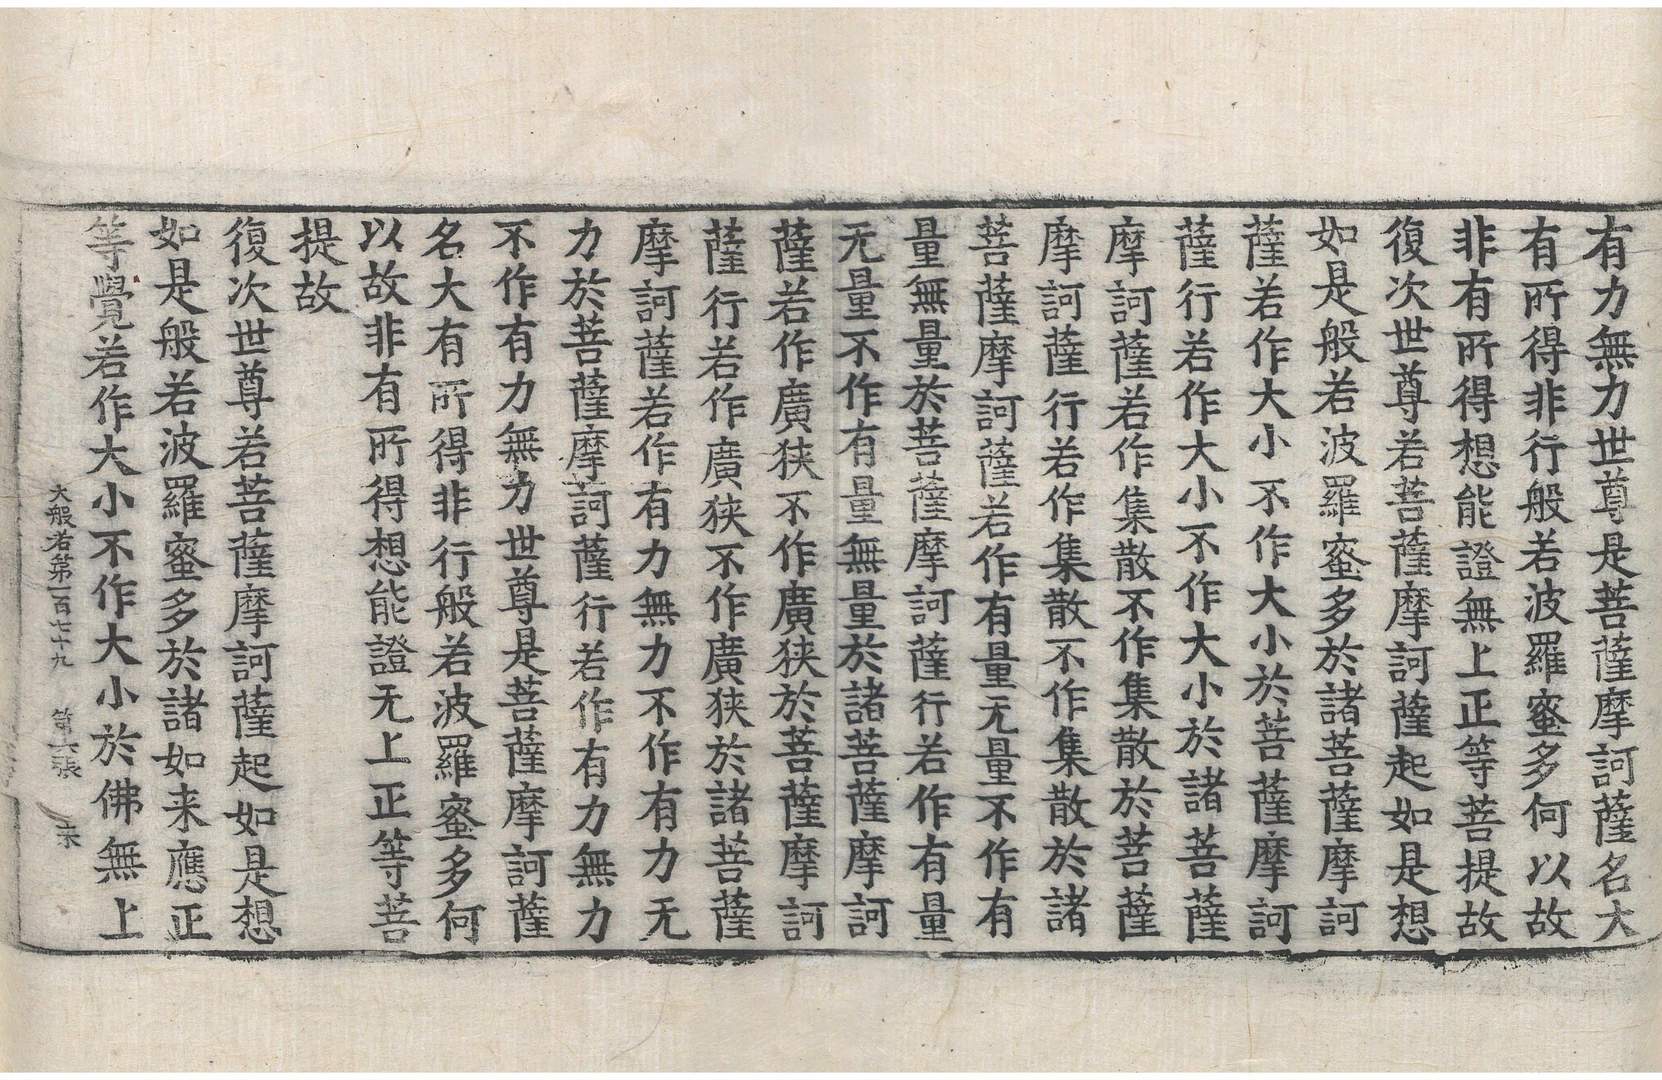 有力無力世尊是菩薩摩訶薩名大
有所得非行般若波羅蜜多何以故
非有所得想能證無上正等菩提故
復次世尊若菩薩摩訶薩起如是想
如是般若波羅蜜多於諸菩薩摩訶
薩若作大小不作大小於菩薩摩訶
薩行若作大小不作大小於諸菩薩
摩訶薩若作集散不作集散於菩薩
摩訶薩行若作集散不作集散於諸
菩薩摩訶薩若作有量无量不作有
量無量於菩薩摩訶薩行若作有量
无量不作有量無量於諸菩薩摩訶
薩若作廣狹不作廣狹於菩薩摩訶
薩行若作廣狹不作廣狹於諸菩薩
摩訶薩若作有力無力不作有力无
力於菩薩摩訶薩行若作有力無力
不作有力無力世尊是菩薩摩訶薩
名大有所得非行般若波羅蜜多何
以故非有所得想能證无上正等菩
提故
復次世尊若菩薩摩訶薩起如是想
如是般若波羅蜜多於諸如来應正
等覺若作大小不作大小於佛無上
大般若第一百七十九 第六張 来